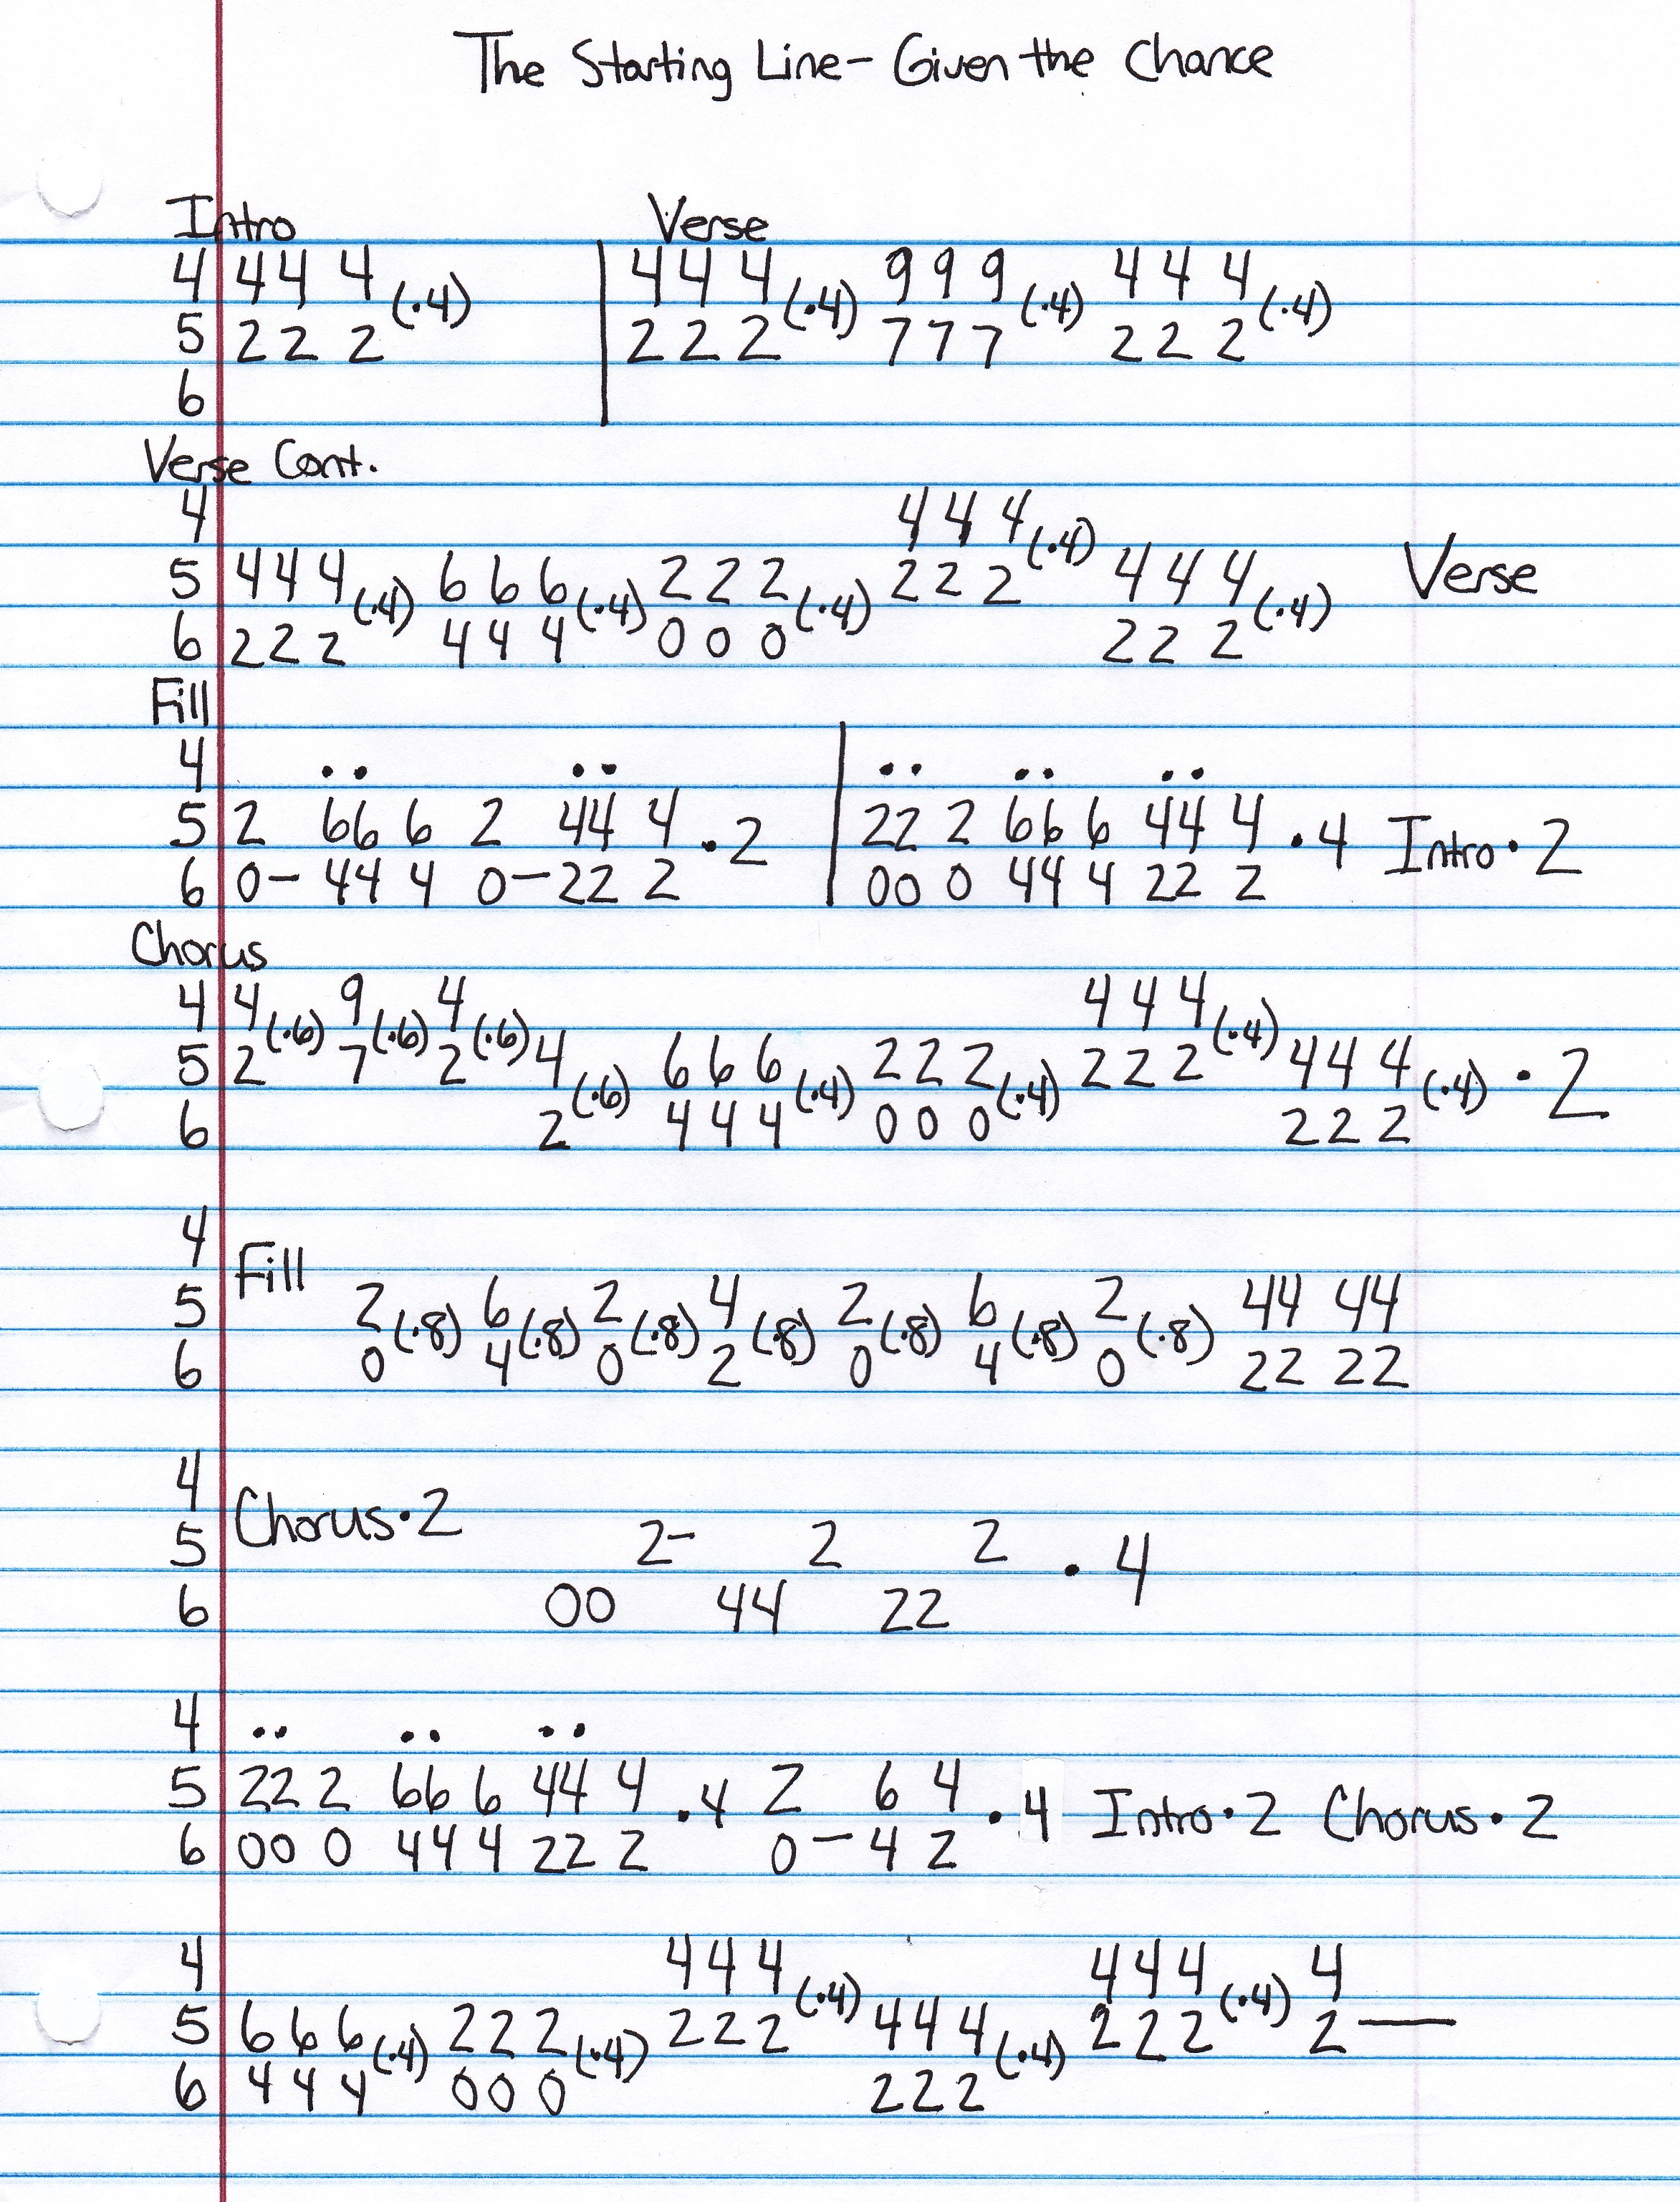 The Starting Line- Given the Chance
Intro Verse
4 4 4 4 (·4) 4 4 4 (·4) 9 9 9 (·4) 4 4 4 (·4)
5 2 2 2 2 2 2 7 7 7 2 2 2
6
Verse Cont.
4 4 4 4 (·4)
5 4 4 4 (·4) 6 6 6 (·4) 2 2 2 (·4) 2 2 2 4 4 4 (·4) Verse
6 2 2 2 4 4 4 0 0 0 2 2 2
Fill
4 ·· ·· ·· ·· ··
5 2 66 6 2 44 4 ·2 22 2 66 6 44 4 ·4 Intro·2
6 0- 44 4 0-22 2 00 0 44 4 22 2
Chorus
4 4 (·6) 9 (·6) 4 (·6) 4 4 4 (·4)
5 2 7 2 4 (·6) 6 6 6 (·4) 2 2 2 (·4) 2 2 2 4 4 4 (·4) ·2
6 2 4 4 4 0 0 0 2 2 2
4
Fill
5 2 (·8) 6 (·8) 2 (·8) 4 (·8) 2 (·8) 6 (·8) 2 (·8) 44 44
6 0 4 0 2 0 4 0 22 22
4
Chorus·2
5 2- 2 2 ·4
6 00 44 22
4 ·· ·· ··
5 22 2 66 6 44 4 ·4 2 6 4 ·4 Intro·2 Chorus·2
6 00 0 44 4 22 2 0-4 2
4 4 4 4 (·4) 4 4 4 (·4) 4
5 6 6 6 (·4) 2 2 2 (·4) 2 2 2 4 4 4 (·4) 2 2 2 2—
6 4 4 4 0 0 0 2 2 2